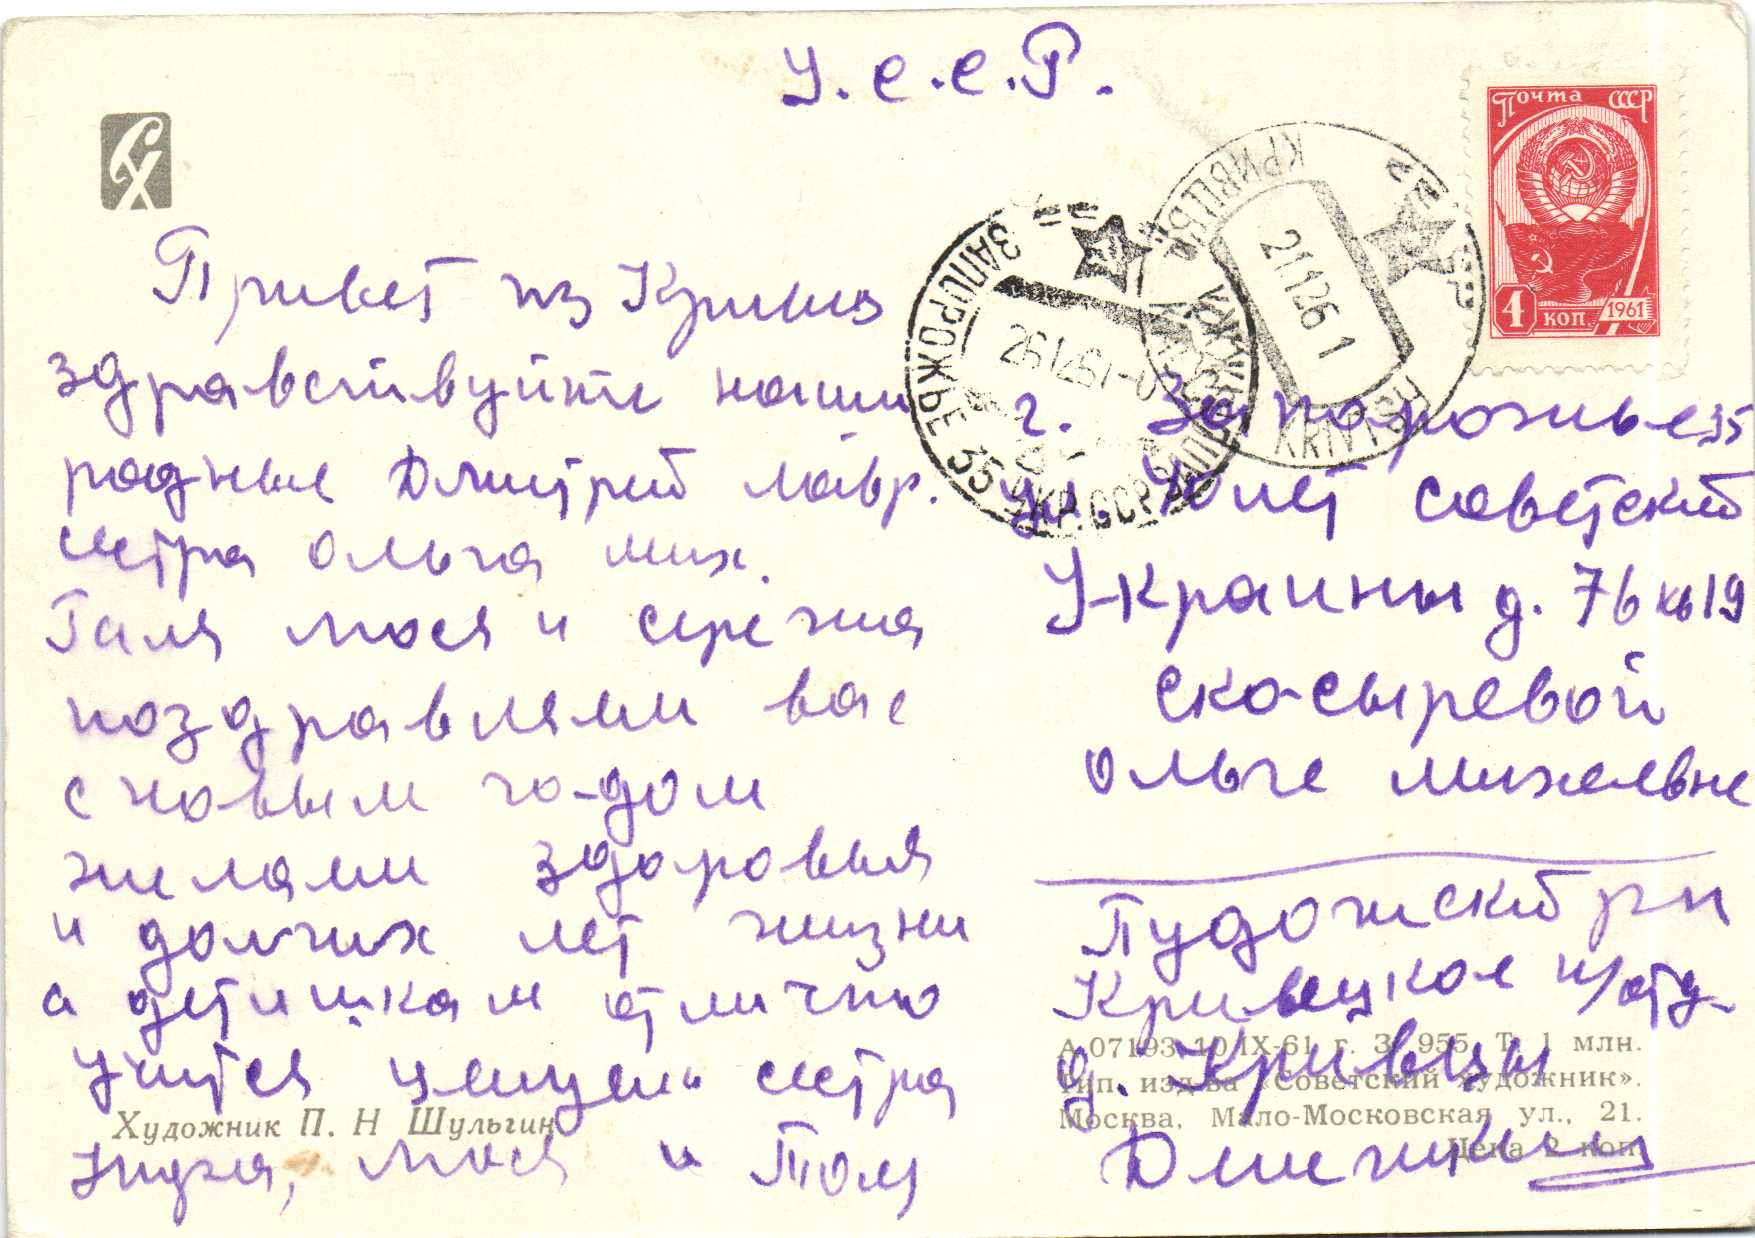 У.С.С.Р.
Почта СССР
4 коп 1961
КРИВЦЫ
21.12.61
KRIVTSY
ЗАПОРОЖЬЕ 35 УКР.ССР
261261
Привет из Кривец
здравствуйте наши
родные Дмитрий Лавр.
сестра Ольга мих.
Галя люся и сережа
поздравляем вас
с новым го-дом
желаем здоровья
и долгих лет жизни
а детишкам отлично
учится целуем сестра
Нюра, люся и Толя
Художник П. Н Шульгин
г. Запорожье 35
ул. 40 лет советской
Украины д. 76 кв 19
ско-сыревой
Ольге михаевне
Пудожский р н
Кривецкое п/отд-
д. Кривцы
А 07193 10/IX-61 г. З. 955 Т. 1 млн.
Тип. изд-ва «Советский художник».
Москва, Мало-Московская ул., 21.
Цена 2 коп.